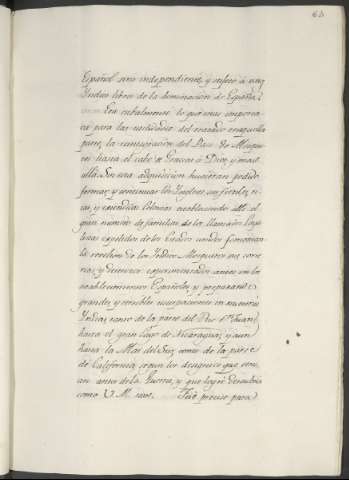 63
Español sino independiente, y sujeto á una
Indios libres de la dominacion de España.
Era cabalmente lo que mas importa-
va para las ... del ... en aquella
parte, la ... del Pais de Mosqui-
tos hasta el cabo de Gracias à Dios, y mas
allà. Sin esta adquisicion huvieran podido
formar, y continuar los Ingleses sus fertiles, ri-
cas, y extendidas Colonias estableciendo alli el
gran numero de familias de los llamados Rea-
listas expelidos de los Estados unidos, fomentar
la rebelion de los Indios Mosquitos, sus corre-
rias, y ... experimentados antes en los
establecimientos Españoles y preparar
grandes, y terribles usurpaciones en nuestras
Indias, tanto de la parte del Rio Sn Juan
hasta el gran Lago de Nicaragua, y aun
hasta la Mar del Sur, como de la parte
de California, segun los designios que tenian
antes de la Guerra, y que logré descubrir
como V. M. save. Fué preciso para